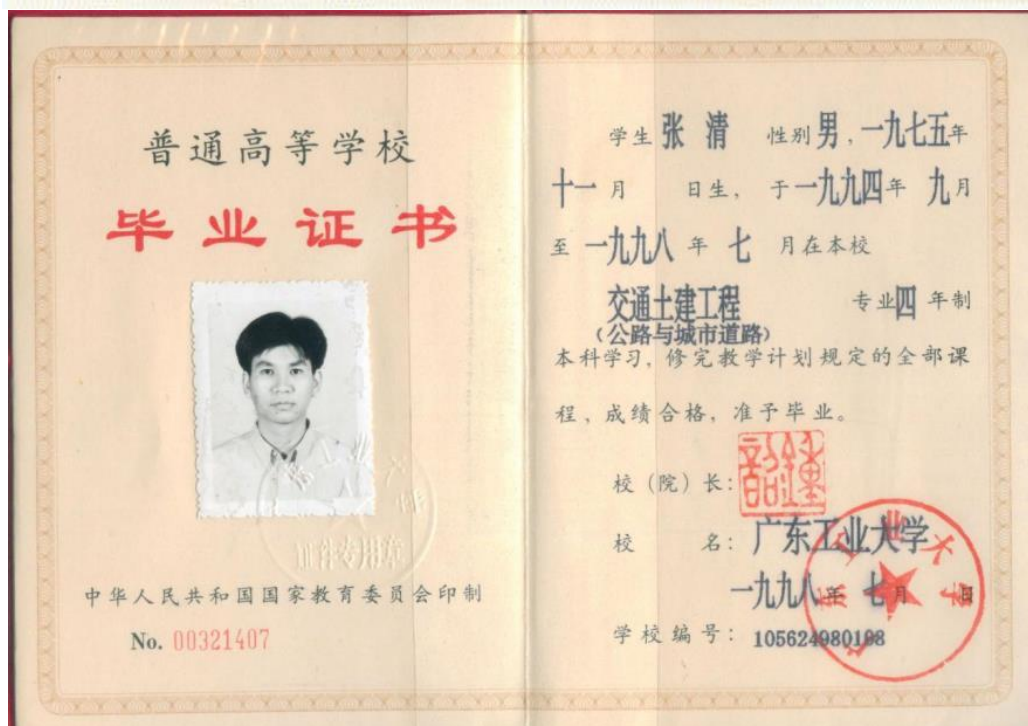 普通高等学校
毕业证书
证件专用章
中华人民共和国国家教育委员会印制
No. 00321407
学生 张 清 性别 男，一九七五年
十一月 日生，于一九九四年 九月
至 一九九八 年 七 月在本校
交通土建工程 专业四 年制
（公路与城市道路）
本科学习，修完教学计划规定的全部课
程，成绩合格，准予毕业。
校（院）长：
校 名：广东工业大学
一九九八年 七月 日
学校编号：105624980198
广东工业大学